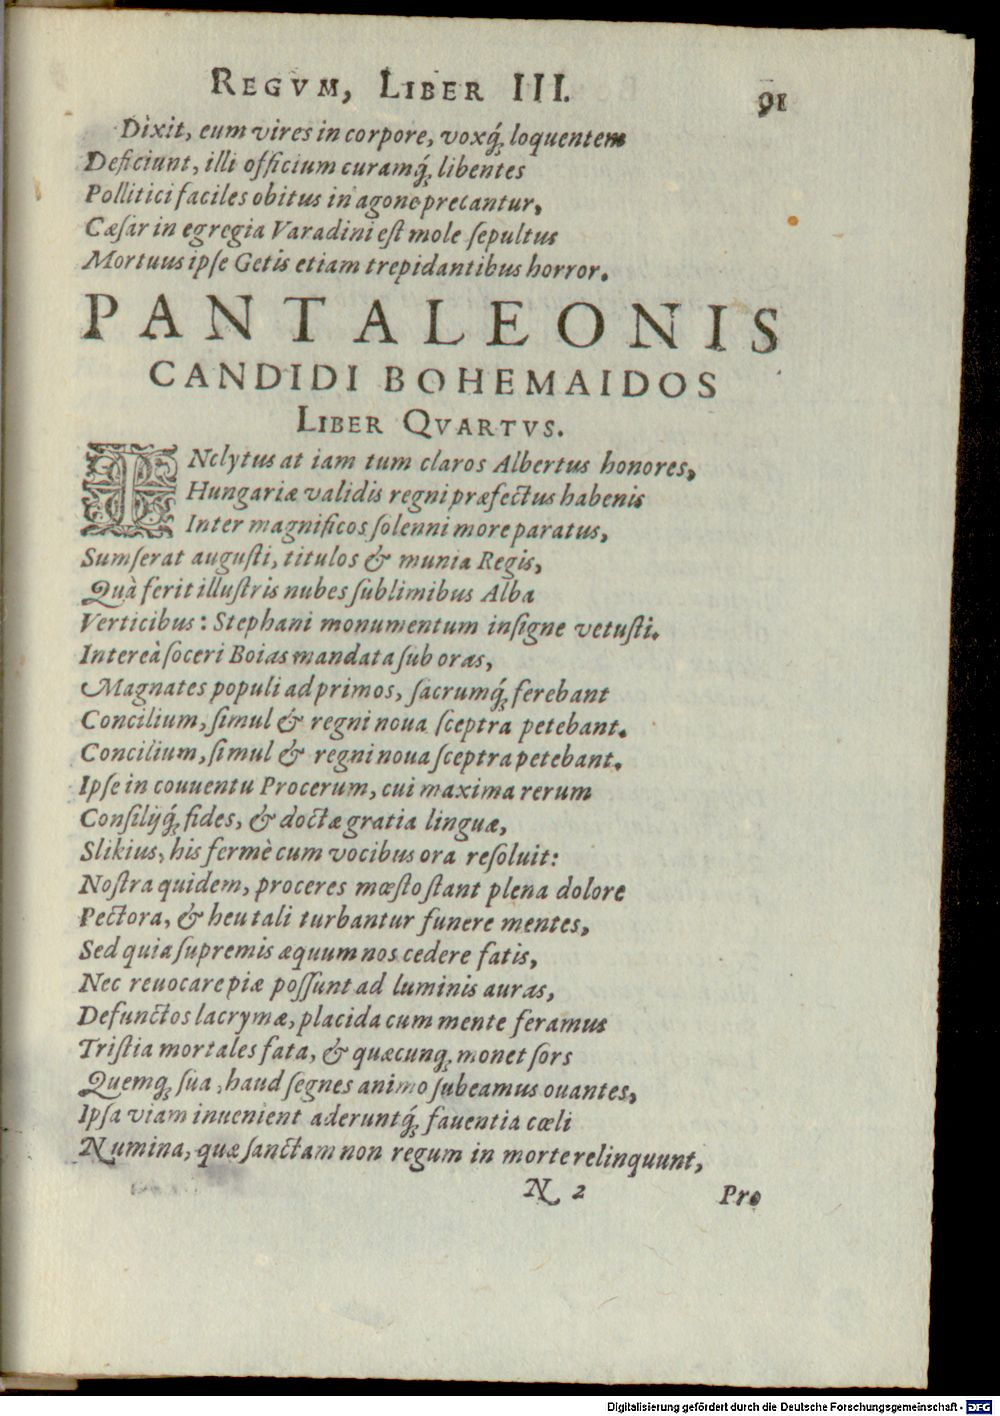 REGVM, LIBER III. 91
Dixit, eum vires in corpore, voxq́; loquentem
Deficiunt, illi officium curamq́; libentes
Polliciti faciles obitus in agone precantur,
Cæſar in egregia Varadini eſt mole ſepultus
Mortuus ipſe Getis etiam trepidantibus horror.
PANTALEONIS
CANDIDI BOHEMAIDOS
LIBER QVARTVS.
INclytus at iam tum claros Albertus honores,
Hungariæ validis regni præfectus habenis
Inter magnificos ſolenni more paratus,
Sumſerat auguſti, titulos & munia Regis,
Quà ferit illuſtris nubes ſublimibus Alba
Verticibus: Stephani monumentum inſigne vetuſti.
Intereà ſoceri Boias mandata ſub oras,
Magnates populi ad primos, ſacrumq́; ferebant
Concilium, ſimul & regni noua ſceptra petebant.
Concilium, ſimul & regni noua ſceptra petebant.
Ipſe in couuentu Procerum, cui maxima rerum
Conſilijq́; fides, & doctæ gratia linguæ,
Slikius, his fermè cum vocibus ora reſoluit:
Noſtra quidem, proceres mœſto ſtant plena dolore
Pectora, & heu tali turbantur funere mentes,
Sed quia ſupremis æquum nos cedere fatis,
Nec reuocare piæ poſſunt ad luminis auras,
Defunctos lacrymæ, placida cum mente feramus
Triſtia mortales fata, & quæcunq; monet ſors
Quemq; ſua, haud ſegnes animo ſubeamus ouantes,
Ipſa viam inuenient aderuntq́; fauentia cœli
Numina, quæ ſanctam non regum in morte relinquunt,
N 2 Pro
Digitalisierung gefördert durch die Deutsche Forschungsgemeinschaft - DFG